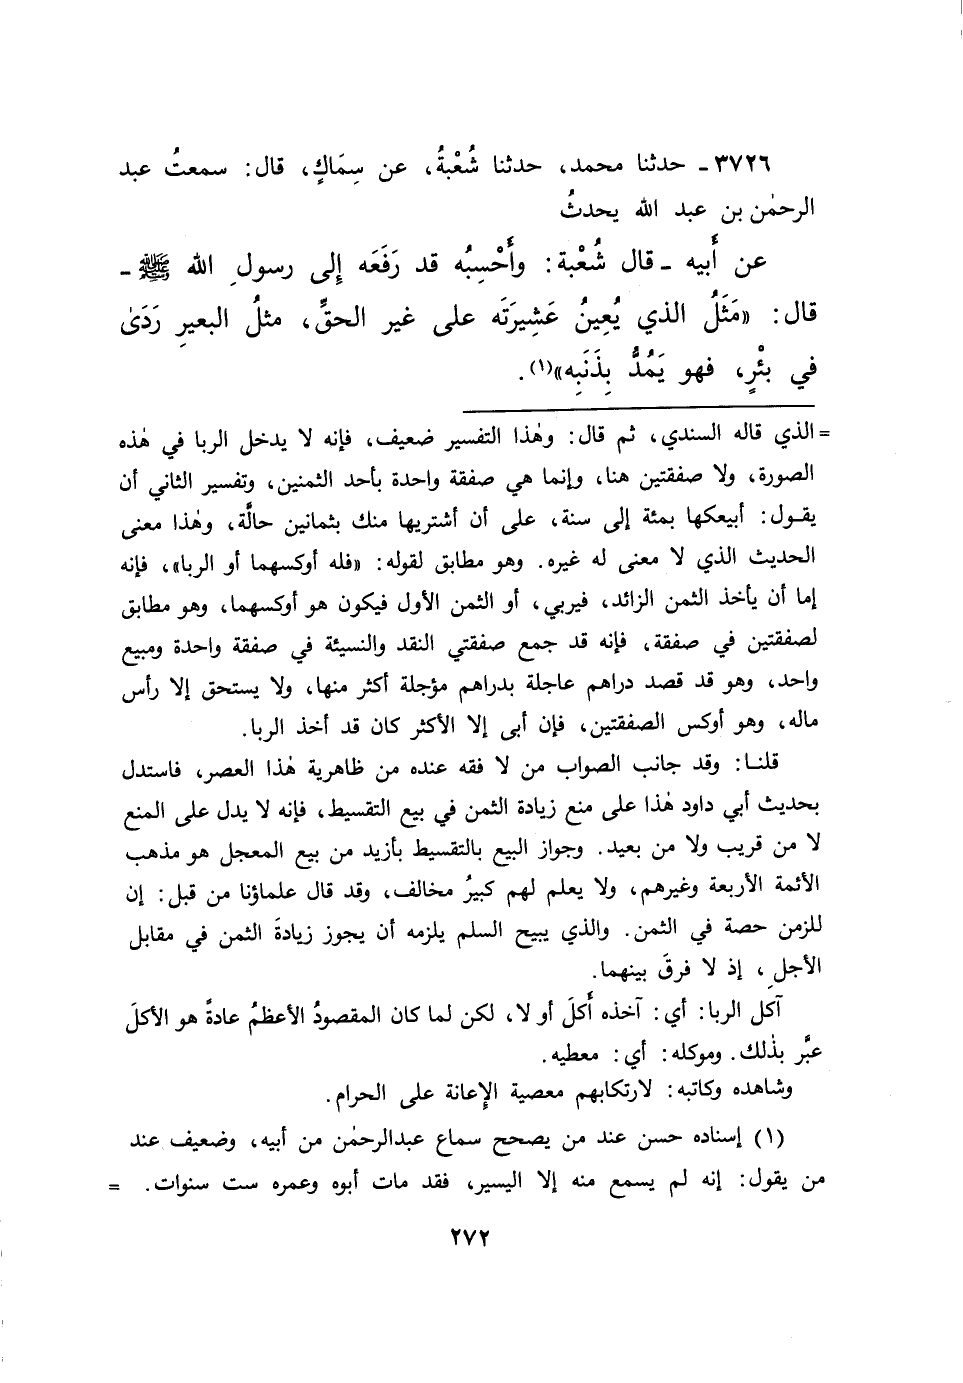 ٣٧٢٦ ـ حدثنا محمد، حدثنا شُعْبةُ، عن سِمَاكٍ، قال: سمعتُ عبد
الرحمٰن بن عبد الله يحدثُ
عن أَبيه ـ قال شُعْبة: وأَحْسِبُه قد رَفَعَه إِلى رسولِ الله ﷺ ـ
قال: «مَثَلُ الذي يُعِينُ عَشِيرَتَه على غير الحقِّ، مثلُ البعيرِ رَدَىٰ
في بئْرٍ، فهو يَمُدُّ بِذَنَبِه»(١).
= الذي قاله السندي، ثم قال: وهٰذا التفسير ضعيف، فإنه لا يدخل الربا في هٰذه
الصورة، ولا صفقتين هنا، وإنما هي صفقة واحدة بأحد الثمنين، وتفسير الثاني أن
يقول: أبيعكها بمئة إلى سنة، على أن أشتريها منك بثمانين حالَّة، وهٰذا معنى
الحديث الذي لا معنى له غيره. وهو مطابق لقوله: «فله أوكسهما أو الربا»، فإنه
إما أن يأخذ الثمن الزائد، فيربي، أو الثمن الأول فيكون هو أوكسهما، وهو مطابق
لصفقتين في صفقة، فإنه قد جمع صفقتي النقد والنسيئة في صفقة واحدة ومبيع
واحد، وهو قد قصد دراهم عاجلة بدراهم مؤجلة أكثر منها، ولا يستحق إلا رأس
ماله، وهو أوكس الصفقتين، فإن أبى إلا الأكثر كان قد أخذ الربا.
قلنا: وقد جانب الصواب من لا فقه عنده من ظاهرية هٰذا العصر، فاستدل
بحديث أبي داود هٰذا على منع زيادة الثمن في بيع التقسيط، فإنه لا يدل على المنع
لا من قريب ولا من بعيد. وجواز البيع بالتقسيط بأزيد من بيع المعجل هو مذهب
الأئمة الأربعة وغيرهم، ولا يعلم لهم كبيرُ مخالف، وقد قال علماؤنا من قبل: إن
للزمن حصة في الثمن. والذي يبيح السلم يلزمه أن يجوز زيادةَ الثمن في مقابل
الأجلِ، إذ لا فرقَ بينهما.
آكل الربا: أي: آخذه أَكلَ أو لا، لكن لما كان المقصودُ الأعظمُ عادةً هو الأكلَ
عبَّر بذٰلك. وموكله: أي: معطيه.
وشاهده وكاتبه: لارتكابهم معصية الإعانة على الحرام.
(١) إسناده حسن عند من يصحح سماع عبدالرحمٰن من أبيه، وضعيف عند
من يقول: إنه لم يسمع منه إلا اليسير، فقد مات أبوه وعمره ست سنوات. =
٢٧٢